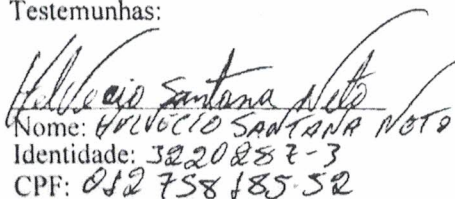 Testemunhas:
Helvecio Santana Neto
Nome: HELVÉCIO SANTANA NETO
Identidade: 3220287-3
CPF: 012 758 185-52